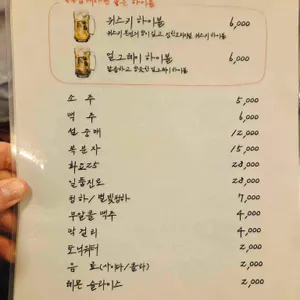 위스키 하이볼 6,000
얼그레이 하이볼 6,000
소 주 5,000
맥 주 6,000
설 중 매 12,000
복 분 자 15,000
화요25 28,000
일품진로 28,000
청하/별빛청하 7,000
무알콜 맥주 4,000
막걸리 4,000
토닉워터 2,000
음 료(사이다/콜라) 2,000
레몬 슬라이스 2,000